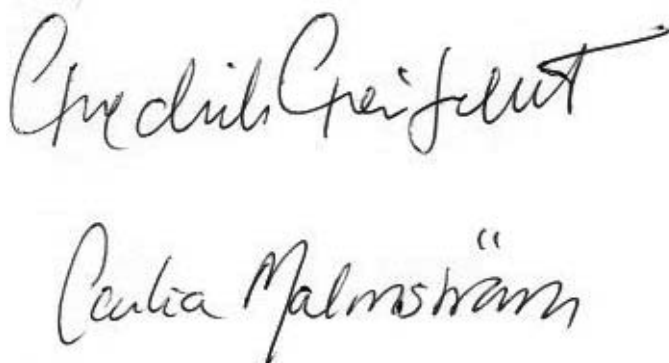 Fredrik Reinfeldt
Cecilia Malmström